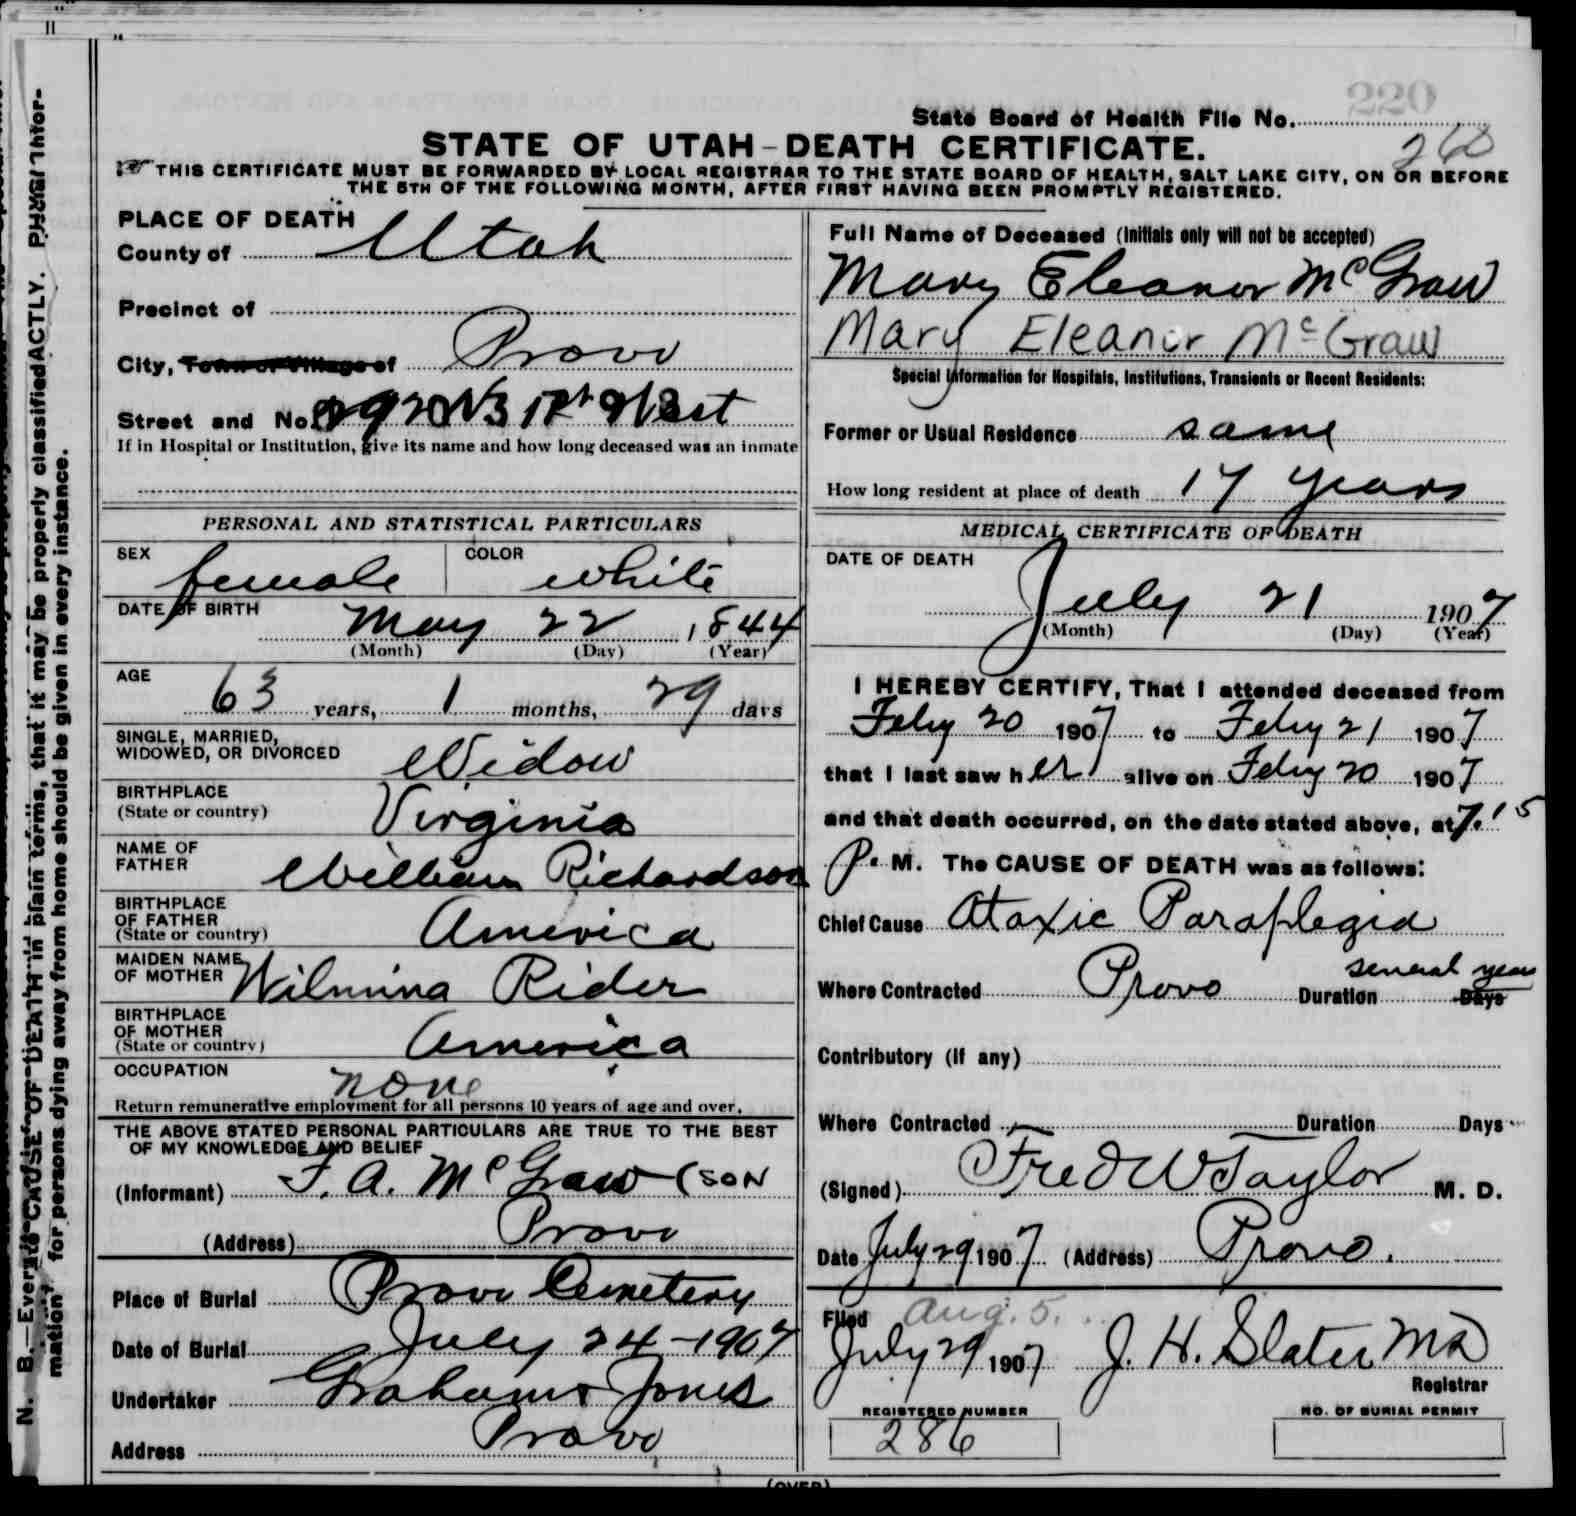 220
State Board of Health File No.
STATE OF UTAH-DEATH CERTIFICATE.
260
THIS CERTIFICATE MUST BE FORWARDED BY LOCAL REGISTRAR TO THE STATE BOARD OF HEALTH, SALT LAKE CITY, ON OR BEFORE
THE 5TH OF THE FOLLOWING MONTH, AFTER FIRST HAVING BEEN PROMPTLY REGISTERED.
PLACE OF DEATH
County of Utah
Precinct of
City, Town or Village of Provo
Street and No. West
If in Hospital or Institution, give its name and how long deceased was an inmate
PERSONAL AND STATISTICAL PARTICULARS
SEX female COLOR white
DATE OF BIRTH
May 22 1844
(Month) (Day) (Year)
AGE
63 years, 1 months, 29 days
SINGLE, MARRIED,
WIDOWED, OR DIVORCED Widow
BIRTHPLACE
(State or country) Virginia
NAME OF
FATHER William Richardson
BIRTHPLACE
OF FATHER
(State or country) America
MAIDEN NAME
OF MOTHER Wilmina Rider
BIRTHPLACE
OF MOTHER
(State or country) America
OCCUPATION none
Return remunerative employment for all persons 10 years of age and over.
THE ABOVE STATED PERSONAL PARTICULARS ARE TRUE TO THE BEST
OF MY KNOWLEDGE AND BELIEF
(Informant) F. A. McGraw (SON
(Address) Provo
Place of Burial Provo Cemetery
Date of Burial July 24-1907
Undertaker Graham & Jones
Address Provo
Full Name of Deceased (Initials only will not be accepted)
Mary Eleanor McGraw
Mary Eleanor McGraw
Special Information for Hospitals, Institutions, Transients or Recent Residents:
Former or Usual Residence same
How long resident at place of death 17 years
MEDICAL CERTIFICATE OF DEATH
DATE OF DEATH
July 21 1907
(Month) (Day) (Year)
I HEREBY CERTIFY, That I attended deceased from
Feby 20 1907 to Feby 21 1907
that I last saw her alive on Feby 20 1907
and that death occurred, on the date stated above, at 7.15
P. M. The CAUSE OF DEATH was as follows:
Chief Cause Ataxic Paraplegia
several years
Where Contracted Provo Duration Days
Contributory (if any)
Where Contracted Duration Days
(Signed) Fred W Taylor M. D.
Date July 29 1907 (Address) Provo.
Filed Aug. 5.
July 29 1907 J. H. Slater MD
Registrar
REGISTERED NUMBER
286
NO. OF BURIAL PERMIT
(OVER)
N. B.—Every
CAUSE OF DEATH in plain terms, that it may be properly classified
ACTLY. PHYSI
mation" for persons dying away from home should be given in every instance.